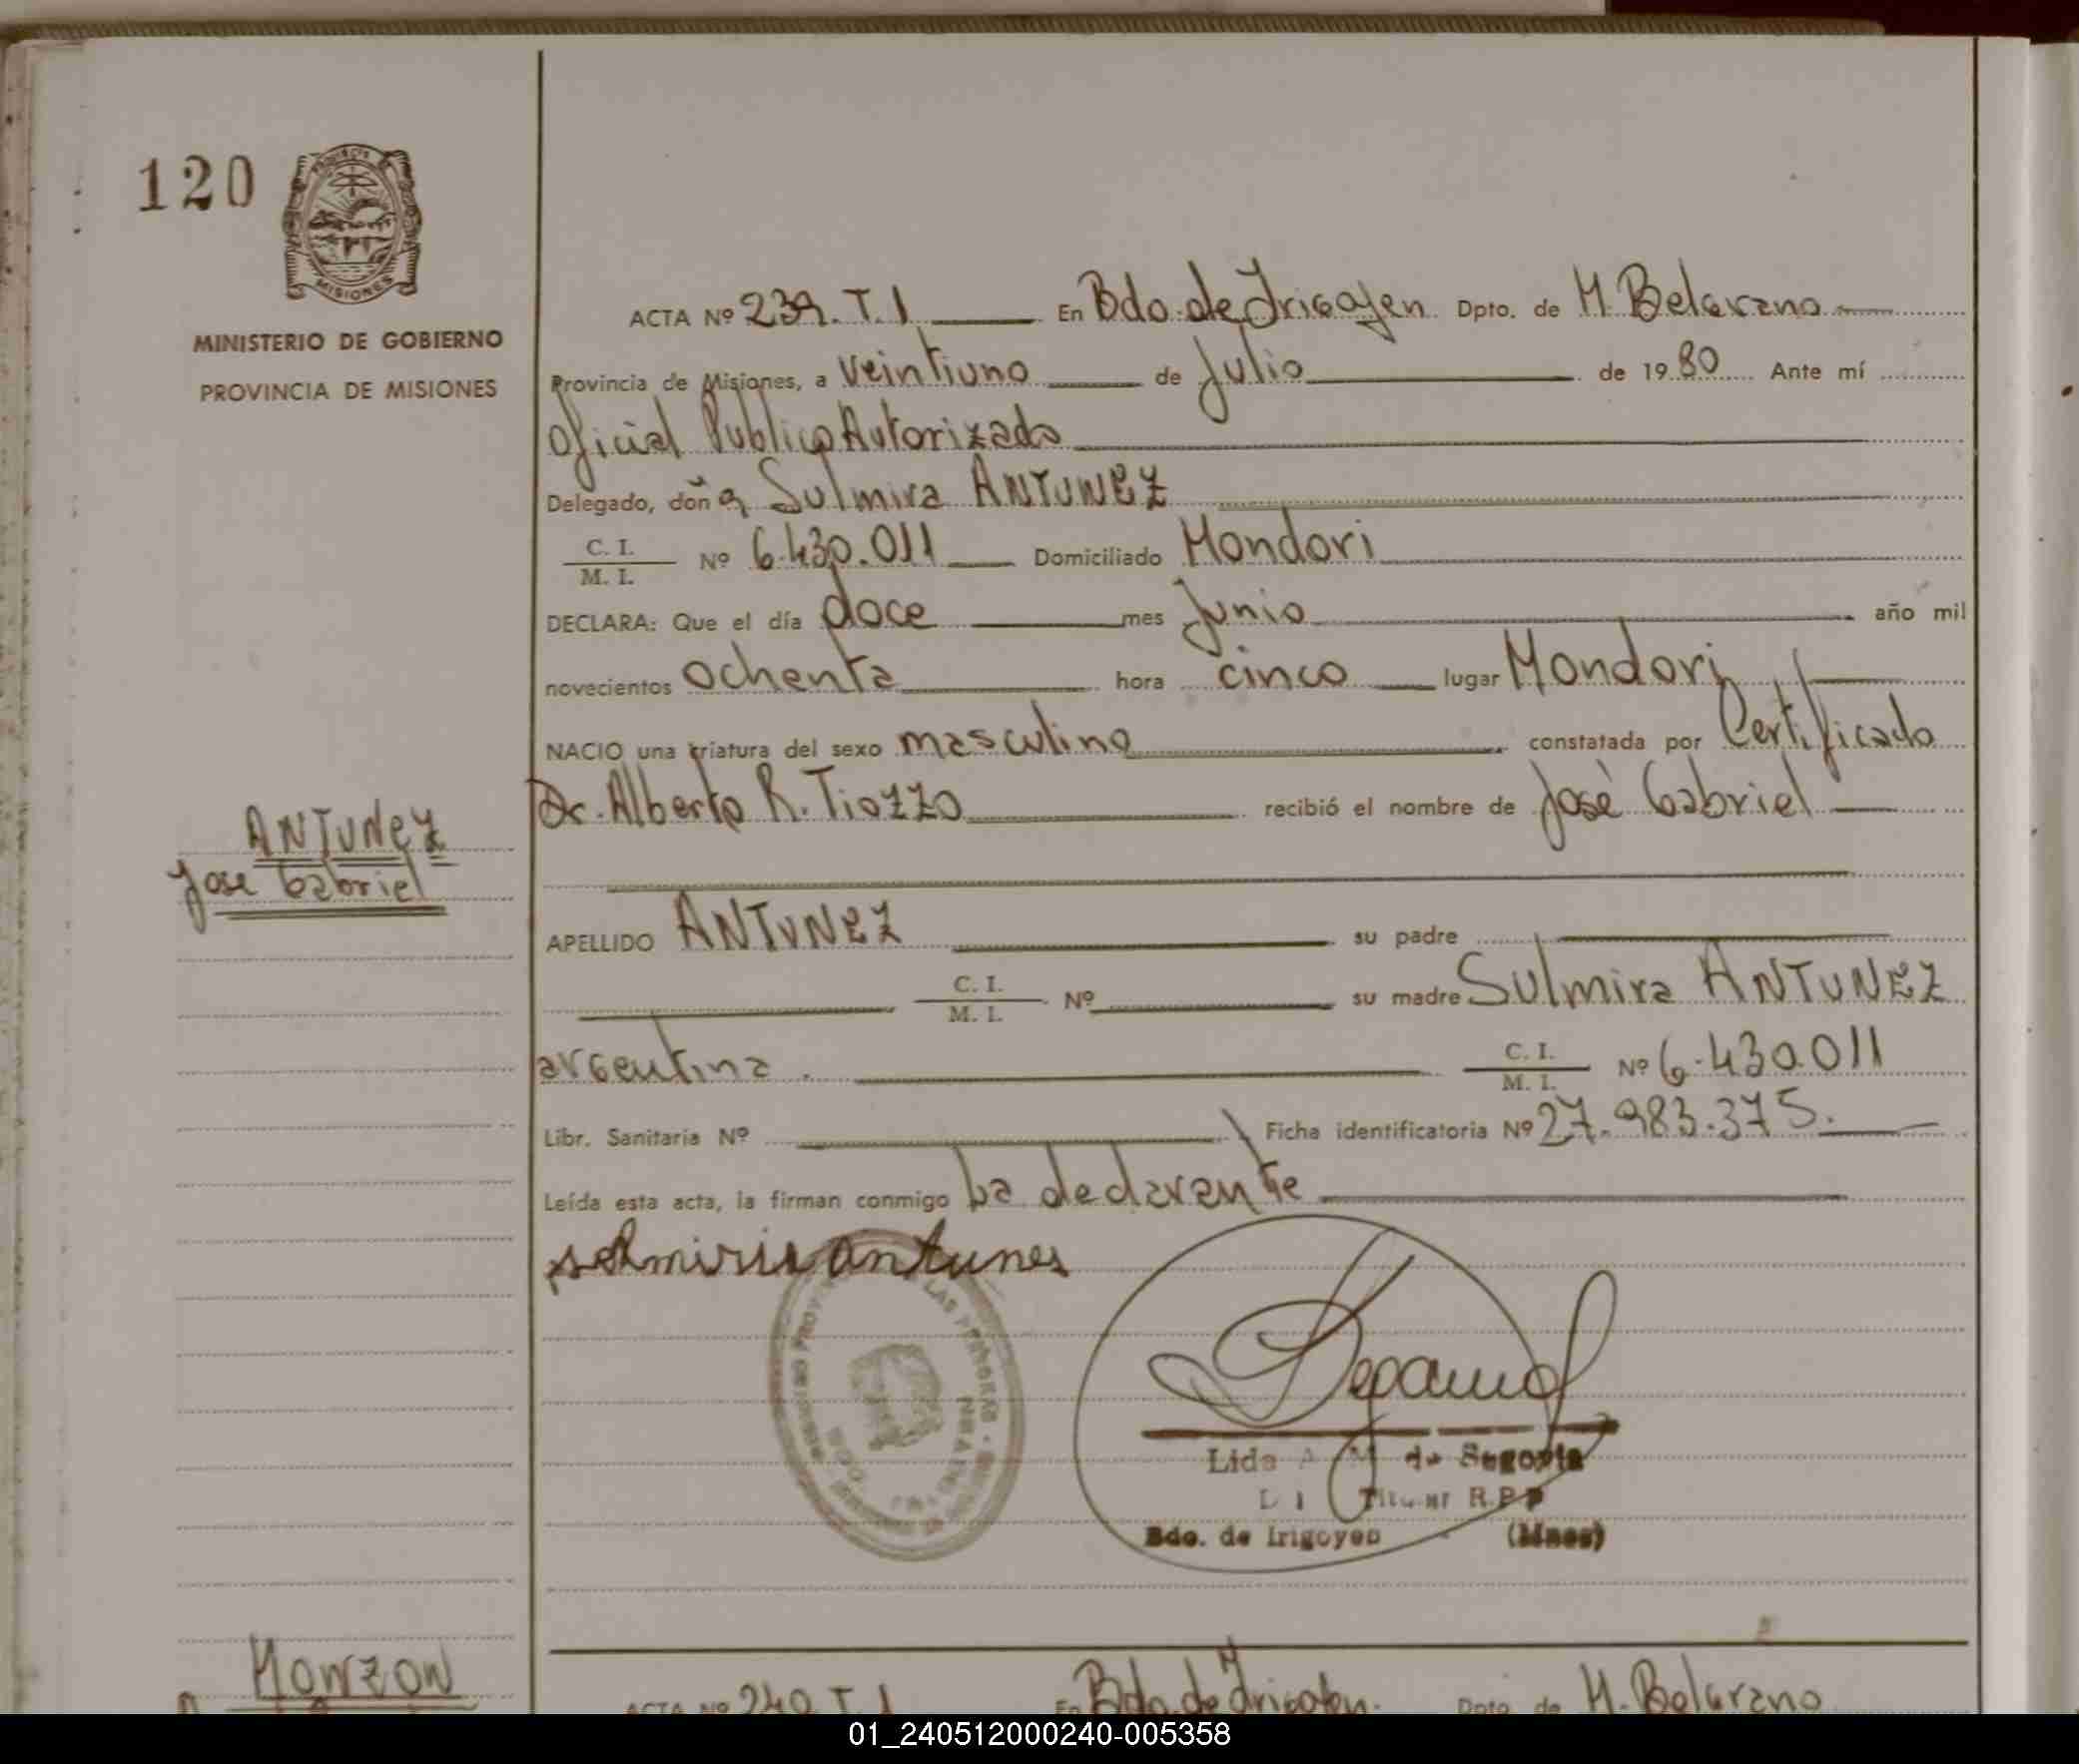 120
PROVINCIA
MISIONES
MINISTERIO DE GOBIERNO
PROVINCIA DE MISIONES
ACTA Nº 239. T. 1 En Bdo. de Irigoyen Dpto. de M. Belgrano
Provincia de Misiones, a veintiuno de Julio de 1980 Ante mí
Oficial Publico Autorizado
Delegado, doña Sulmira ANTUNEZ
C. I. / M. I. Nº 6.430.011 Domiciliado Mondori
DECLARA: Que el día doce mes Junio año mil
novecientos ochenta hora cinco lugar Mondori
NACIO una criatura del sexo masculino constatada por Certificado
Dr. Alberto R. Tiozzo recibió el nombre de José Gabriel
ANTUNEZ
Jose Gabriel
APELLIDO ANTUNEZ su padre
C. I. / M. I. Nº su madre Sulmira ANTUNEZ
argentina. C. I. / M. I. Nº 6.430.011
Libr. Sanitaria Nº Ficha identificatoria Nº 27.983.375.
Leída esta acta, la firman conmigo La declarante
antunes
Lida A. M. de Segovia
Titular R.P.P
Bdo. de Irigoyen (Mnes)
MONZON
ACTA Nº 240 T. 1 En Bdo. de Irigoyen. Dpto. de M. Belgrano
01_240512000240-005358